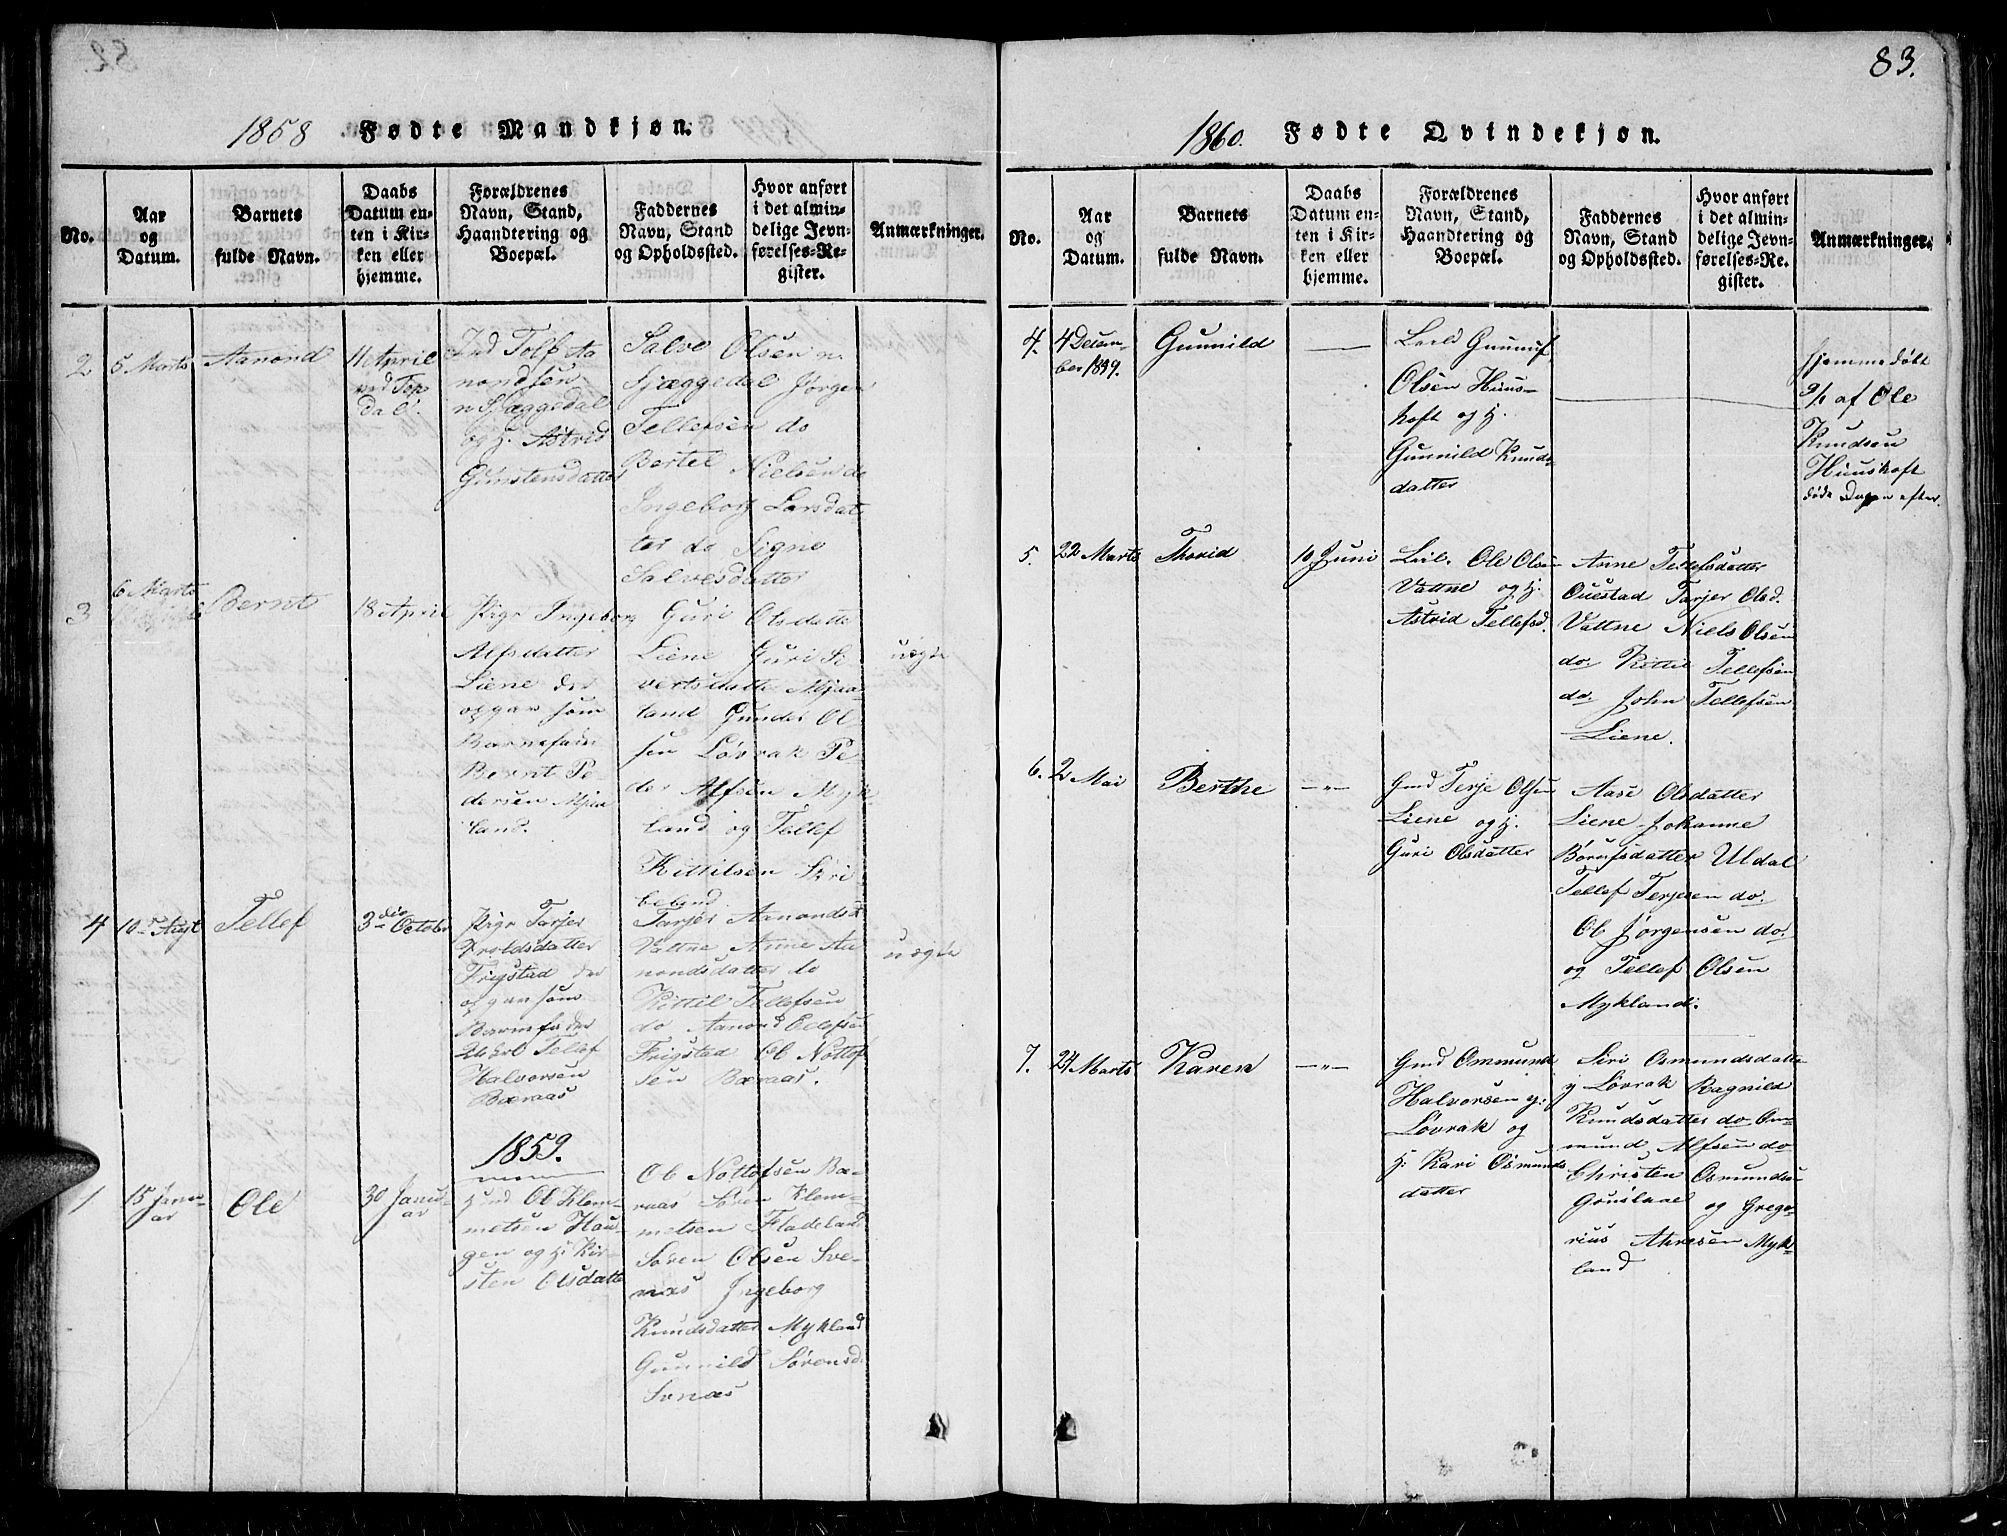 1858 Fødte Mandkjøn.
No.
Aar og Datum.
Barnets fulde Navn.
Daabs Datum enten i Kirken eller hjemme.
Forældrenes Navn, Stand, Haandtering og Boepæl.
Faddernes Navn, Stand og Opholdssted.
Hvor anført i det almindelige Jevnførelses-Register.
Anmærkninger.
2
5 Marts
Aanond
11 April
ved Top
dal
Tolf Aa
nondsen
Sjæggedal
og H. Astrid
Gunstensdatter
Salve Olsen
Sjæggedal Jørgen
Tellefsen do
Bertel Nielsen do
Ingeborg Larsdat
ter do Signe
Salvesdatter
3
6 Marts
Bernt
18 April
Pige Ingeborg
Alfsdatter
Liene der
opgav som
Barnefader
Bernt Pe
dersen Mjaa
land.
Guri Olsdatter
Liene Guri Si
vertsdatter Mjaa
land Gunder Ol
sen Løvrak Pe
der Alfsen Myk
land og Tellef
Kittilsen Skri
beland
uægte
4
10 Augt
Tellef
3die October
Pige Tarjer
Froldsdatter
Frigstad der
opgav som
Barnefader
Tellef
Halvorsen
Bæraas
Tarjer Aanonds
Vattne Anne Aa
nondsdatter do
Kittil Tellefsen
do Aanond Edefsen
Frigstad Ob Nottof
sen Bæraas.
uægte
1859.
1
15 Janu
ar
Ole
30 Janu
ar
Ob Klem
metsen Hau
gen og H. Kir
sten Olsdatter
Ob Nottofsen Bæ
raas Søren Klem
metsen Fladeland
Søren Olsen Sve
naas Ingeborg
Knudsdatter Mykland
Gunnild Sørensd.
Svnaas
83.
1860. Fødte Qvindekjøn.
No.
Aar og Datum.
Barnets fulde Navn.
Daabs Datum enten i Kirken eller hjemme.
Forældrenes Navn, Stand, Haandtering og Boepæl.
Faddernes Navn, Stand og Opholdssted.
Hvor anført i det almindelige Jevnførelses-Register.
Anmærkninger.
4.
4 Decem
ber 1859.
Gunnild
Gunnuf
Olsen Huus
hoft og H.
Gunnild Knuds
datter
hjemmedøbt
9/1 af Ole
Knudsen
Huushoft
døde Dagen efter.
5.
22 Marts
Thorid
10 Juni
Leil. Ole Olsen
Vattne og H.
Astrid Tellefsd.
Anne Tellefsdatter
Ouestad Tarjer Olsd.
Vattne Niels Olsen
do Kittil Tellefsen
do. John Tellefsen
Liene.
6.
2 Mai
Berthe
-"-
Gmd Terje Olsen
Liene og H.
Guri Olsdatter
Aase Olsdatter
Liene Johanne
Børufsdatter Uldal
Tellef Terjesen do.
Ob Jørgensen do.
og Tellef Olsen
Mykland.
7.
24 Marts
Karen
-"-
Gmd Ommund
Halvorsen y:
Løvrak og
H. Kari Osmunds
datter
Siri Osmundsdatter
y Løvrak Ragnild
Knudsdatter do Om
mund Alfsen do
Christen Osmundsen
Gouslaae og Grego
rius Ahresen Myk
land